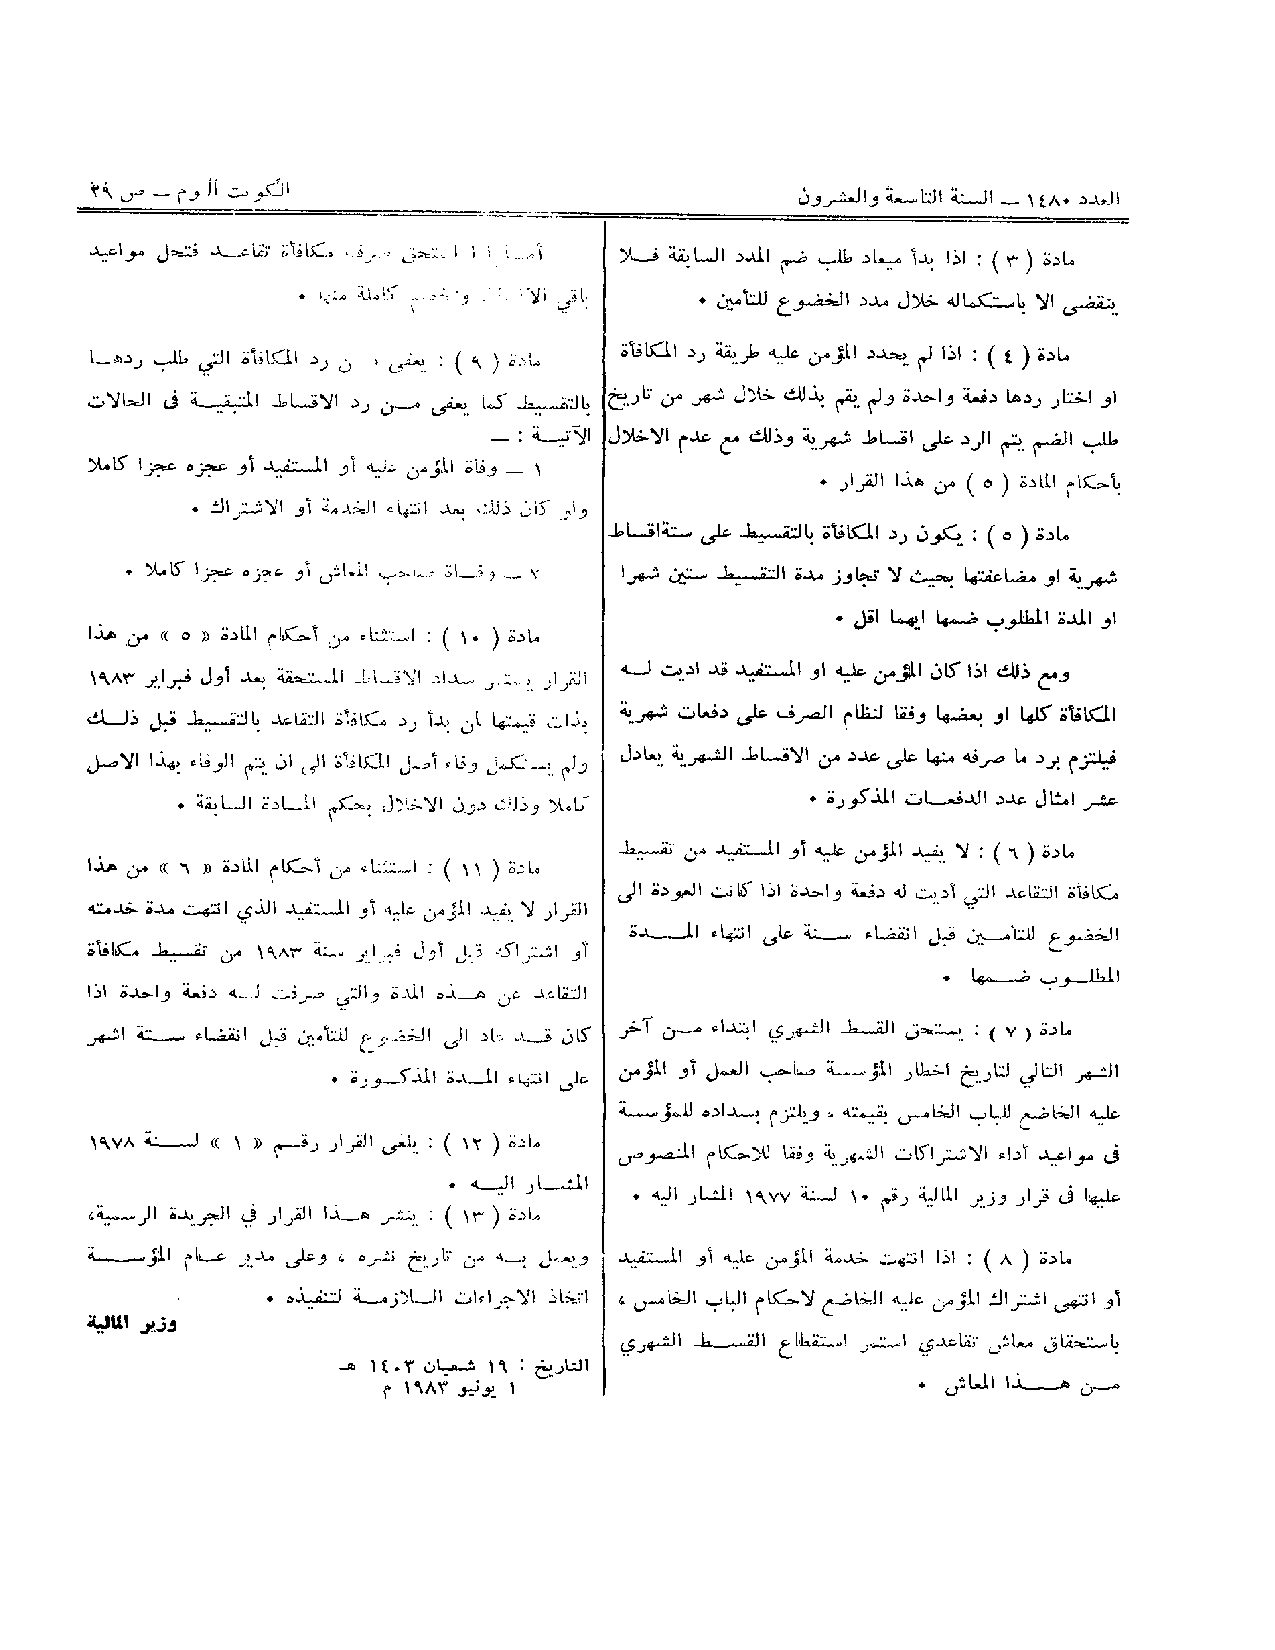 العدد ١٤٨٠ — السنة التاسعة والعشرون
الكويت اليوم — ص ٣٩
مادة ( ٣ ) : اذا بدأ ميعاد طلب ضم المدد السابقة فلا
ينقضى الا باستكماله خلال مدد الخضوع للتأمين .
مادة ( ٤ ) : اذا لم يحدد المؤمن عليه طريقة رد المكافأة
او اختار ردها دفعة واحدة ولم يقم بذلك خلال شهر من تاريخ
طلب الضم يتم الرد على اقساط شهرية وذلك مع عدم الاخلال
بأحكام المادة ( ٥ ) من هذا القرار .
مادة ( ٥ ) : يكون رد المكافأة بالتقسيط على ستة اقساط
شهرية او مضاعفتها بحيث لا تجاوز مدة التقسيط ستين شهرا
او المدة المطلوب ضمها ايهما اقل .
ومع ذلك اذا كان المؤمن عليه او المستفيد قد اديت له
المكافأة كلها او بعضها وفقا لنظام الصرف على دفعات شهرية
فيلتزم برد ما صرفه منها على عدد من الاقساط الشهرية يعادل
عشر امثال عدد الدفعات المذكورة .
مادة ( ٦ ) : لا يفيد المؤمن عليه أو المستفيد من تقسيط
مكافأة التقاعد التي أديت له دفعة واحدة اذا كانت العودة الى
الخضوع للتأمين قبل انقضاء سنة على انتهاء المدة
المطلوب ضمها .
مادة ( ٧ ) : يستحق القسط الشهري ابتداء من آخر
الشهر التالي لتاريخ اخطار المؤسسة صاحب العمل أو المؤمن
عليه الخاضع للباب الخامس بقيمته ، ويلتزم بسداده للمؤسسة
فى مواعيد أداء الاشتراكات الشهرية وفقا للاحكام المنصوص
عليها فى قرار وزير المالية رقم ١٠ لسنة ١٩٧٧ المشار اليه .
مادة ( ٨ ) : اذا انتهت خدمة المؤمن عليه أو المستفيد
أو انتهى اشتراك المؤمن عليه الخاضع لاحكام الباب الخامس ،
باستحقاق معاش تقاعدي استمر استقطاع القسط الشهري
من هذا المعاش .
أما اذا استحق صرف مكافأة تقاعد فتحل مواعيد
باقي الاقساط وتخصم كاملة منها .
مادة ( ٩ ) : يعفى من رد المكافأة التي طلب ردها
بالتقسيط كما يعفى من رد الاقساط المتبقية فى الحالات
الآتية : —
١ — وفاة المؤمن عليه أو المستفيد أو عجزه عجزا كاملا
ولو كان ذلك بعد انتهاء الخدمة أو الاشتراك .
٢ — وفاة صاحب المعاش أو عجزه عجزا كاملا .
مادة ( ١٠ ) : استثناء من أحكام المادة « ٥ » من هذا
القرار يستمر سداد الاقساط المستحقة بعد أول فبراير ١٩٨٣
بذات قيمتها لمن بدأ رد مكافأة التقاعد بالتقسيط قبل ذلك
ولم يستكمل وفاء أصل المكافأة الى ان يتم الوفاء بهذا الاصل
كاملا وذلك دون الاخلال بحكم المادة السابقة .
مادة ( ١١ ) : استثناء من أحكام المادة « ٦ » من هذا
القرار لا يفيد المؤمن عليه أو المستفيد الذي انتهت مدة خدمته
أو اشتراكه قبل أول فبراير سنة ١٩٨٣ من تقسيط مكافأة
التقاعد عن هذه المدة والتي صرفت له دفعة واحدة اذا
كان قد عاد الى الخضوع للتأمين قبل انقضاء ستة اشهر
على انتهاء المدة المذكورة .
مادة ( ١٢ ) : يلغى القرار رقم « ١ » لسنة ١٩٧٨
المشار اليه .
مادة ( ١٣ ) : ينشر هذا القرار في الجريدة الرسمية،
ويعمل به من تاريخ نشره ، وعلى مدير عام المؤسسة
اتخاذ الاجراءات اللازمة لتنفيذه .
وزير المالية
التاريخ : ١٩ شعبان ١٤٠٣ هـ
١ يونيو ١٩٨٣ م